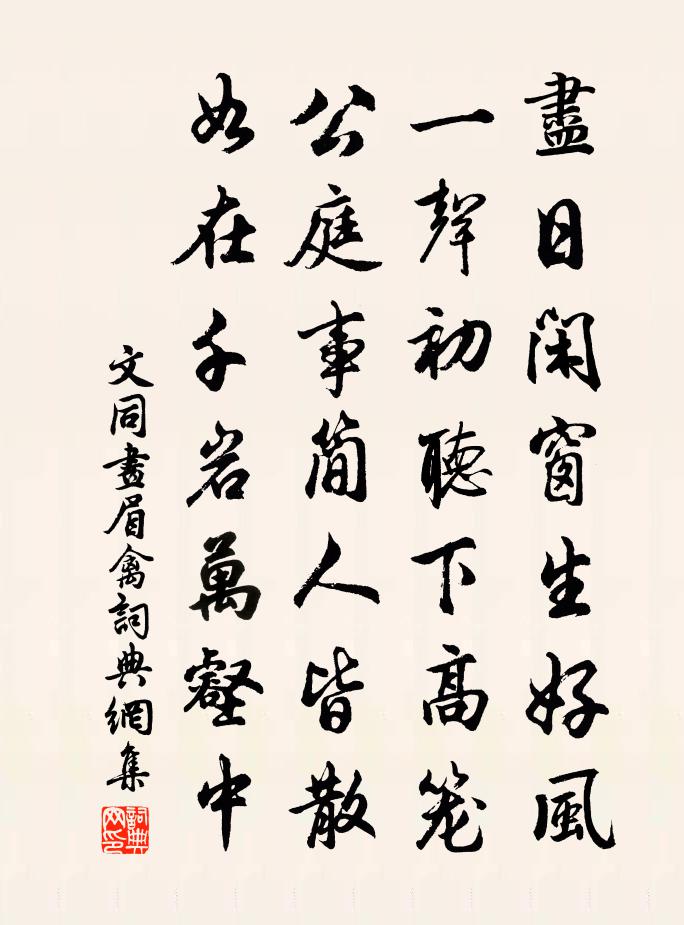 盡日閑窗生好風
一聲初聽下高笼
公庭事简人皆散
如在千岩萬壑中
文同畫眉禽詞典網集
詞典網印